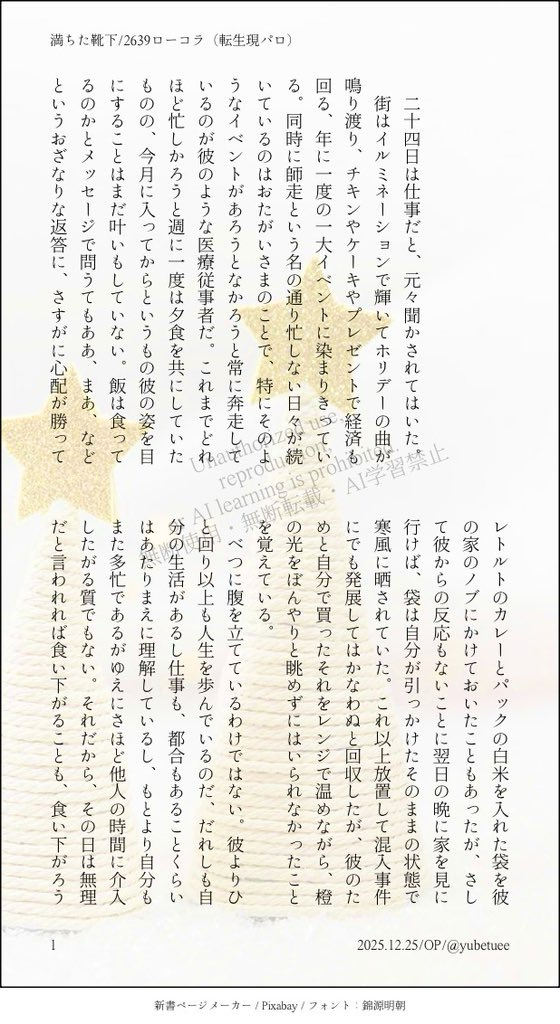 満ちた靴下/2639ローコラ（転生現パロ）
二十四日は仕事だと、元々聞かされてはいた。
街はイルミネーションで輝いてホリデーの曲が
鳴り渡り、チキンやケーキやプレゼントで経済も
回る、年に一度の一大イベントに染まりきってい
る。同時に師走という名の通り忙しない日々が続
いているのはおたがいさまのことで、特にそのよ
うなイベントがあろうとなかろうと常に奔走して
いるのが彼のような医療従事者だ。これまでどれ
ほど忙しかろうと週に一度は夕食を共にしていた
ものの、今月に入ってからというもの彼の姿を目
にすることはまだ叶いもしていない。飯は食って
るのかとメッセージで問うてもああ、まあ、など
というおざなりな返答に、さすがに心配が勝って
レトルトのカレーとパックの白米を入れた袋を彼
の家のノブにかけておいたこともあったが、さし
て彼からの反応もないことに翌日の晩に家を見に
行けば、袋は自分が引っかけたそのままの状態で
寒風に晒されていた。これ以上放置して混入事件
にでも発展してはかなわぬと回収したが、彼のた
めと自分で買ったそれをレンジで温めながら、橙
の光をぼんやりと眺めずにはいられなかったこと
を覚えている。
べつに腹を立てているわけではない。彼よりひ
と回り以上も人生を歩んでいるのだ、だれしも自
分の生活があるし仕事も、都合もあることくらい
はあたりまえに理解しているし、もとより自分も
また多忙であるがゆえにさほど他人の時間に介入
したがる質でもない。それだから、その日は無理
だと言われれば食い下がることも、食い下がろう
Unauthorized use,
reproduction,
AI learning is prohibited.
無断使用・無断転載・AI学習禁止
1
2025.12.25/OP/@yubetuee
新書ページメーカー / Pixabay / フォント：錦源明朝